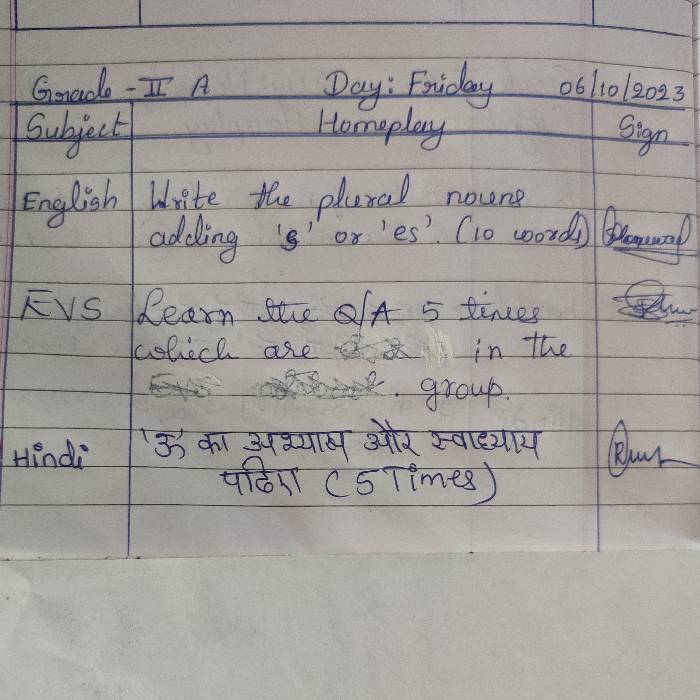 Grade - II A Day: Friday 06/10/2023
Subject Homeplay Sign
English Write the plural nouns
adding 's' or 'es'. (10 words)
EVS Learn the Q/A 5 times
which are in the
group.
Hindi 'ऊ' का अभ्यास और स्वाध्याय
पढिए (5 Times)